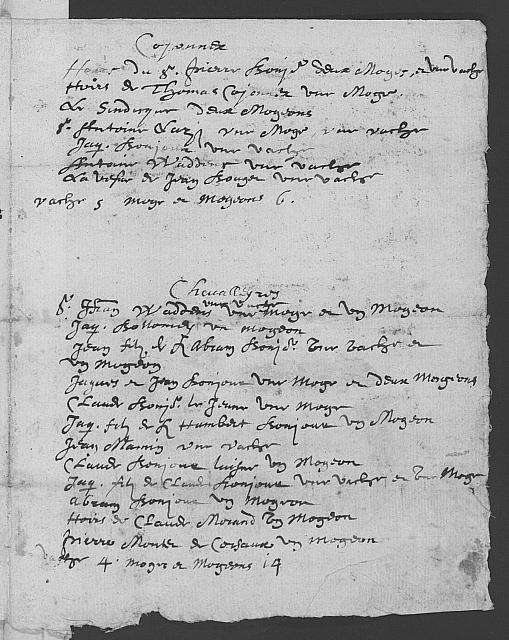 Cojonnex
Hoirs du Sr. Pierre Bonjr. deux Moges, et une vache
Hoirs de Thomas Cojonnex une Moge.
Le Sindicque deux Mogeons
Sr. Antoine une Moge, une vache
Jaq. Bonjour une vache
Antoine Waddens une vache
La vefve de Jean une vache
vache 5 moge et Mogeons 6.
Chevalleyres
Sr. Jean Waddens une vache une Moge et un Mogeon
Jaq. un mogeon
Jean filz de ft Abram Bonjr. une vache et
un Mogeon
Jaques et Jean Bonjour une Moge et deux Mogeons
Claude Bonjr. le Jeune une Moge
Jaq. filz de ft Humbert Bonjour un Mogeon
Jean Mamin une vache
Claude Bonjour un Mogeon
Jaq. filz de Claude Bonjour une vache et une Moge
Abram Bonjour un Mogeon
Hoirs de Claude Morand un Mogeon
Pierre Monet de Corsaux un Mogeon
Vache 4. moges et Mogeons 14